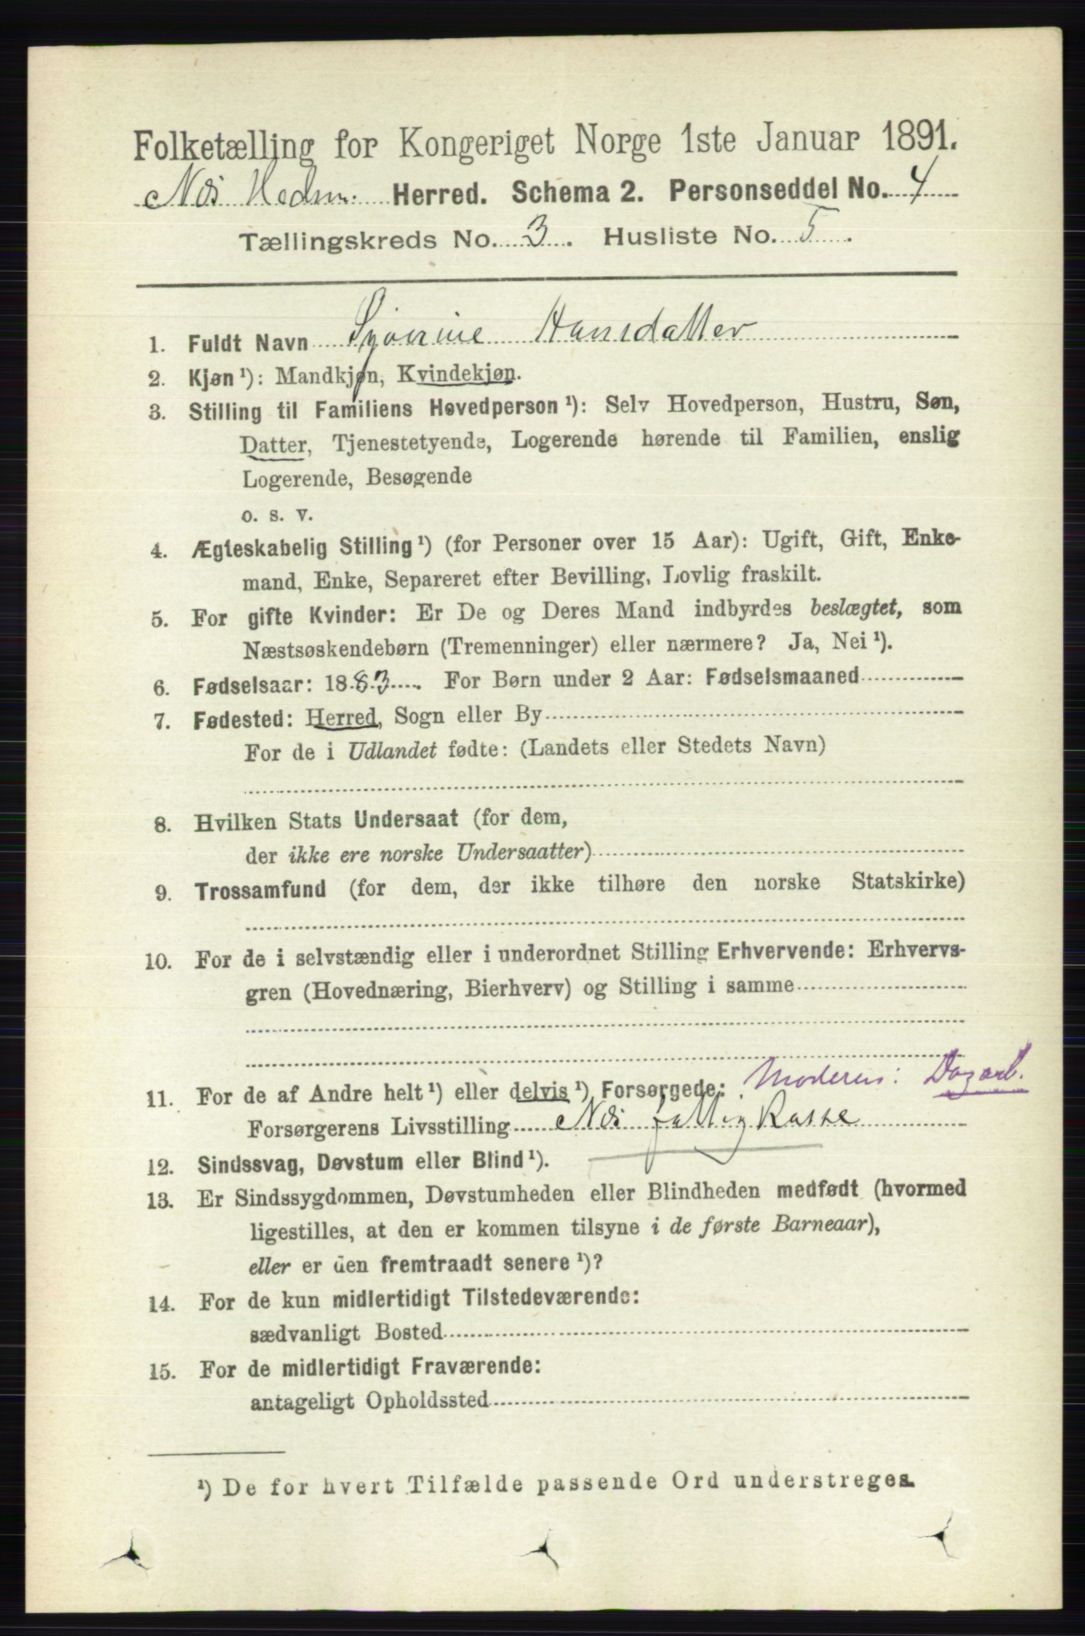 Folketælling for Kongeriget Norge 1ste Januar 1891.
Næs Hedm. Herred. Schema 2. Personseddel No. 4
Tællingskreds No. 3. Husliste No. 5.
1. Fuldt Navn Hansdatter
2. Kjøn ¹): Mandkjøn, Kvindekjøn.
3. Stilling til Familiens Hovedperson ¹): Selv Hovedperson, Hustru, Søn,
Datter, Tjenestetyende, Logerende hørende til Familien, enslig
Logerende, Besøgende
o. s. v.
4. Ægteskabelig Stilling ¹) (for Personer over 15 Aar): Ugift, Gift, Enke-
mand, Enke, Separeret efter Bevilling, Lovlig fraskilt.
5. For gifte Kvinder: Er De og Deres Mand indbyrdes beslægtet, som
Næstsøskendebørn (Tremenninger) eller nærmere? Ja, Nei ¹).
6. Fødselsaar: 1883. For Børn under 2 Aar: Fødselsmaaned
7. Fødested: Herred, Sogn eller By
For de i Udlandet fødte: (Landets eller Stedets Navn)
8. Hvilken Stats Undersaat (for dem,
der ikke ere norske Undersaatter)
9. Trossamfund (for dem, der ikke tilhøre den norske Statskirke)
10. For de i selvstændig eller i underordnet Stilling Erhvervende: Erhvervs-
gren (Hovednæring, Bierhverv) og Stilling i samme
Moderen: Dagarb.
11. For de af Andre helt ¹) eller delvis ¹) Forsørgede:
Forsørgerens Livsstilling Næs fattigkasse
12. Sindssvag, Døvstum eller Blind ¹).
13. Er Sindssygdommen, Døvstumheden eller Blindheden medfødt (hvormed
ligestilles, at den er kommen tilsyne i de første Barneaar),
eller er den fremtraadt senere ¹)?
14. For de kun midlertidigt Tilstedeværende:
sædvanligt Bosted
15. For de midlertidigt Fraværende:
antageligt Opholdssted
¹) De for hvert Tilfælde passende Ord understreges.